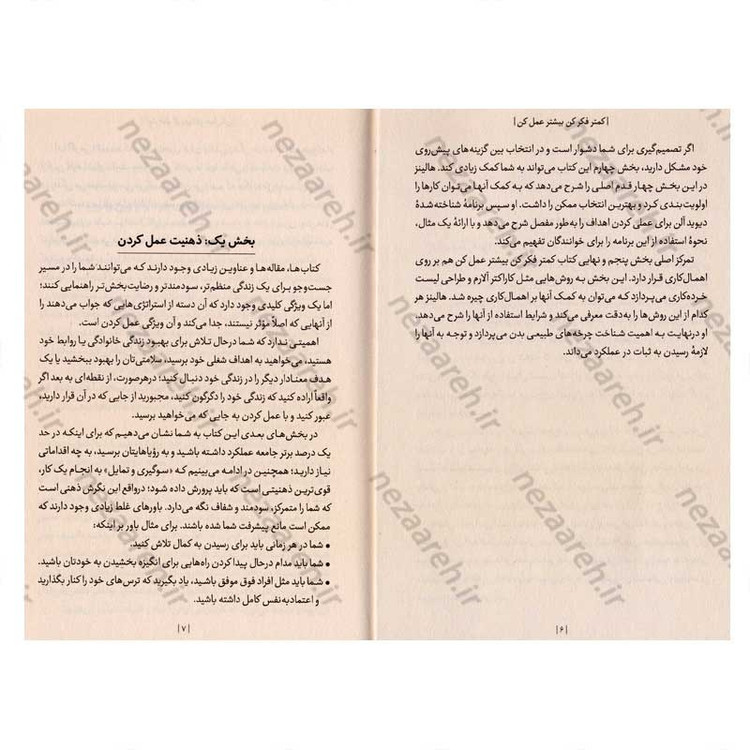 | کمتر فکر کن بیشتر عمل کن |
اگر تصمیم‌گیری برای شما دشوار است و در انتخاب بین گزینه‌های پیش‌روی
خود مشکل دارید، بخش چهارم این کتاب می‌تواند به شما کمک زیادی کند. هالینز
در این بخش چهار قدم اصلی را شرح می‌دهد که به کمک آنها می‌توان کارها را
اولویت‌بندی کرد و بهترین انتخاب ممکن را داشت. او سپس برنامهٔ شناخته‌شدهٔ
دیوید آلن برای عملی کردن اهداف را به‌طور مفصل شرح می‌دهد و با ارائهٔ یک مثال،
نحوهٔ استفاده از این برنامه را برای خوانندگان تفهیم می‌کند.
تمرکز اصلی بخش پنجم و نهایی کتاب کمتر فکر کن بیشتر عمل کن هم بر روی
اهمال‌کاری قرار دارد. این بخش به روش‌هایی مثل کاراکتر آلارم و طراحی لیست
خرده‌کاری می‌پردازد که می‌توان به کمک آنها بر اهمال‌کاری چیره شد. هالینز هر
کدام از این روش‌ها را به‌دقت معرفی می‌کند و شرایط استفاده از آنها را شرح می‌دهد.
او درنهایت به اهمیت شناخت چرخه‌های طبیعی بدن می‌پردازد و توجه به آنها را
لازمهٔ رسیدن به ثبات در عملکرد می‌داند.
| ۶ |
بخش یک: ذهنیت عمل کردن
کتاب‌ها، مقاله‌ها و عناوین زیادی وجود دارند که می‌توانند شما را در مسیر
جست‌وجو برای یک زندگی منظم‌تر، سودمندتر و رضایت‌بخش‌تر راهنمایی کنند؛
اما یک ویژگی کلیدی وجود دارد که آن دسته از استراتژی‌هایی که جواب می‌دهند را
از آنهایی که اصلاً مؤثر نیستند، جدا می‌کند و آن ویژگی عمل کردن است.
اهمیتی ندارد که شما درحال تلاش برای بهبود زندگی خانوادگی یا روابط خود
هستید، می‌خواهید به اهداف شغلی خود برسید، سلامتی‌تان را بهبود ببخشید یا یک
هدف معنادار دیگر را در زندگی خود دنبال کنید؛ درهرصورت، از نقطه‌ای به بعد اگر
واقعاً اراده کنید که زندگی خود را دگرگون کنید، مجبورید از جایی که در آن قرار دارید،
عبور کنید و با عمل کردن به جایی که می‌خواهید برسید.
در بخش‌های بعدی این کتاب به شما نشان می‌دهیم که برای اینکه در حد
یک درصد برتر جامعه عملکرد داشته باشید و به رؤیاهایتان برسید، به چه اقداماتی
نیاز دارید؛ همچنین در ادامه می‌بینیم که «سوگیری و تمایل» به انجام یک کار،
قوی‌ترین ذهنیتی است که باید پرورش داده شود؛ درواقع این نگرش ذهنی است
که شما را متمرکز، سودمند و شفاف نگه می‌دارد. باورهای غلط زیادی وجود دارند که
ممکن است مانع پیشرفت شما شده باشند. برای مثال باور بر اینکه:
• شما در هر زمانی باید برای رسیدن به کمال تلاش کنید.
• شما باید مدام درحال پیدا کردن راه‌هایی برای انگیزه بخشیدن به خودتان باشید.
• شما باید مثل افراد فوق موفق باشید، یاد بگیرید که ترس‌های خود را کنار بگذارید
و اعتمادبه‌نفس کامل داشته باشید.
| ۷ |
nezaareh.ir
nezaareh.ir
nezaareh.ir
nezaareh.ir
nezaareh.ir
nezaareh.ir
nezaareh.ir
nezaareh.ir